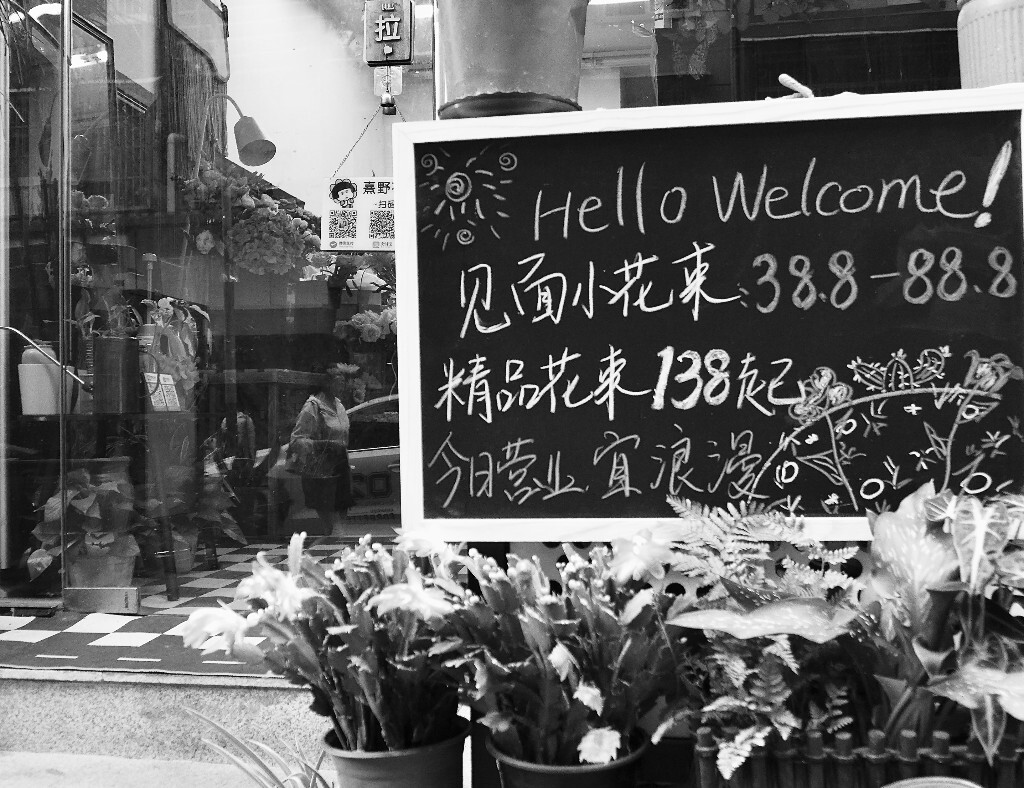 拉
熹野
扫
Hello Welcome!
见面小花束:38.8-88.8
精品花束138起
今日营业 宜浪漫